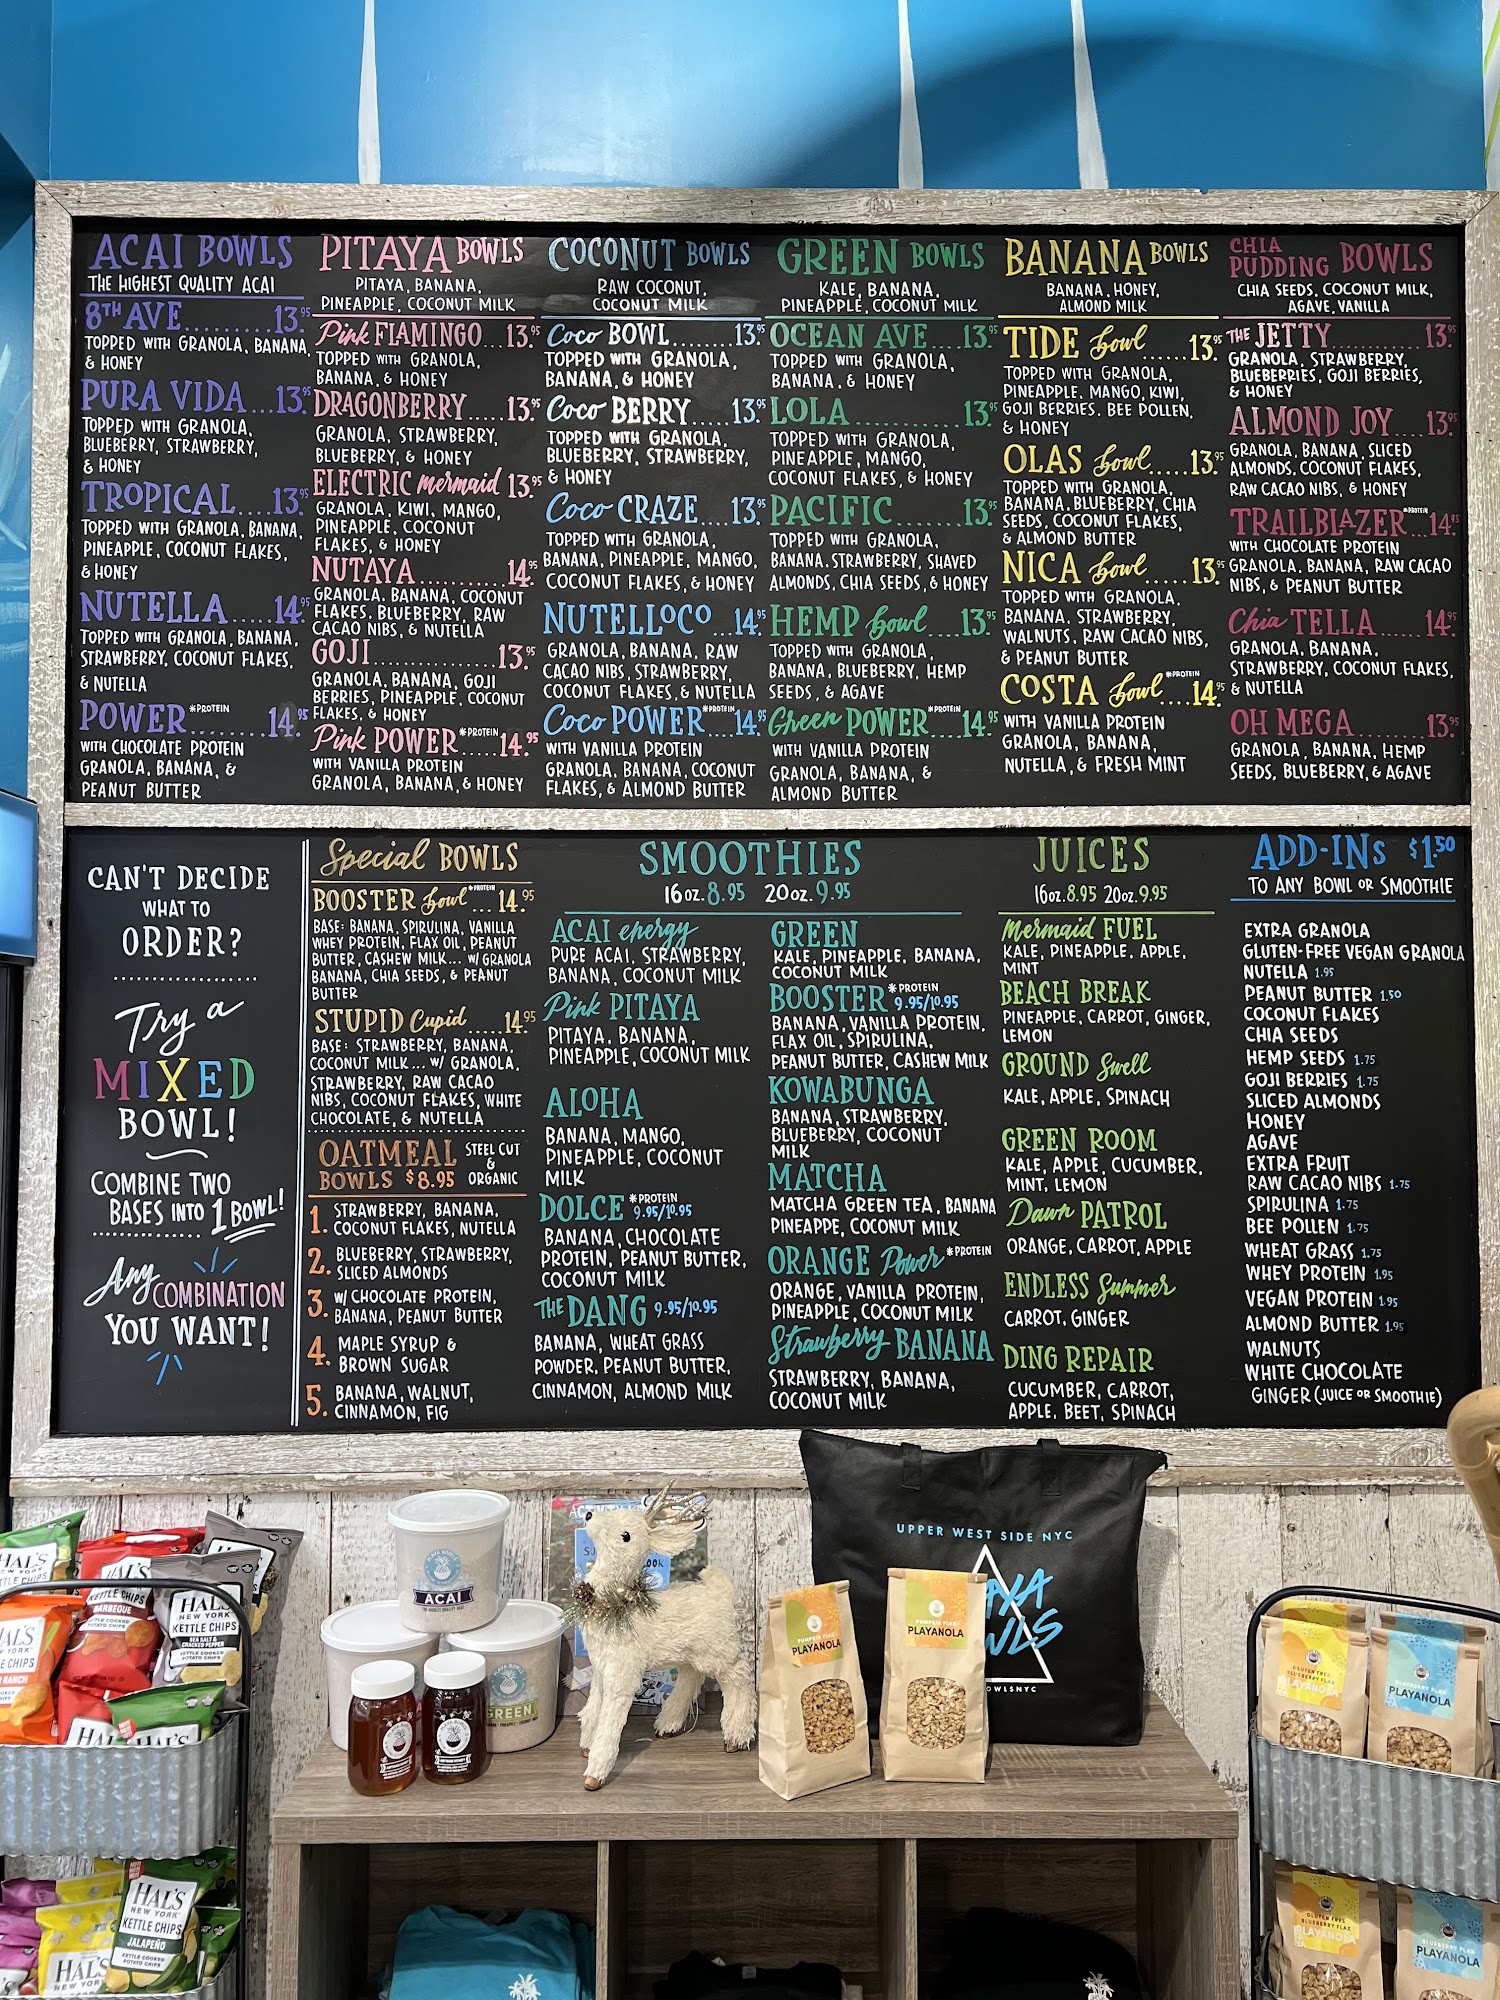 ACAI BOWLS
THE HIGHEST QUALITY ACAI
8TH AVE.........13.95
TOPPED WITH GRANOLA, BANANA,
& HONEY
PURA VIDA...13.95
TOPPED WITH GRANOLA,
BLUEBERRY, STRAWBERRY,
& HONEY
TROPICAL....13.95
TOPPED WITH GRANOLA, BANANA,
PINEAPPLE, COCONUT FLAKES,
& HONEY
NUTELLA.....14.95
TOPPED WITH GRANOLA, BANANA,
STRAWBERRY, COCONUT FLAKES,
& NUTELLA
POWER *PROTEIN ........14.95
WITH CHOCOLATE PROTEIN
GRANOLA, BANANA, &
PEANUT BUTTER
PITAYA BOWLS
PITAYA, BANANA,
PINEAPPLE, COCONUT MILK
Pink FLAMINGO...13.95
TOPPED WITH GRANOLA,
BANANA, & HONEY
DRAGONBERRY.....13.95
GRANOLA, STRAWBERRY,
BLUEBERRY, & HONEY
ELECTRIC mermaid 13.95
GRANOLA, KIWI, MANGO,
PINEAPPLE, COCONUT
FLAKES, & HONEY
NUTAYA..........14.95
GRANOLA, BANANA, COCONUT
FLAKES, BLUEBERRY, RAW
CACAO NIBS, & NUTELLA
GOJI..............13.95
GRANOLA, BANANA, GOJI
BERRIES, PINEAPPLE, COCONUT
FLAKES, & HONEY
Pink POWER *PROTEIN.....14.95
WITH VANILLA PROTEIN
GRANOLA, BANANA, & HONEY
COCONUT BOWLS
RAW COCONUT,
COCONUT MILK
Coco BOWL.......13.95
TOPPED WITH GRANOLA,
BANANA, & HONEY
Coco BERRY.....13.95
TOPPED WITH GRANOLA,
BLUEBERRY, STRAWBERRY,
& HONEY
Coco CRAZE....13.95
TOPPED WITH GRANOLA,
BANANA, PINEAPPLE, MANGO,
COCONUT FLAKES, & HONEY
NUTELLOCO...14.95
GRANOLA, BANANA, RAW
CACAO NIBS, STRAWBERRY,
COCONUT FLAKES, & NUTELLA
Coco POWER *PROTEIN...14.95
WITH VANILLA PROTEIN
GRANOLA, BANANA, COCONUT
FLAKES, & ALMOND BUTTER
GREEN BOWLS
KALE, BANANA,
PINEAPPLE, COCONUT MILK
OCEAN AVE....13.95
TOPPED WITH GRANOLA,
BANANA, & HONEY
LOLA ............13.95
TOPPED WITH GRANOLA,
PINEAPPLE, MANGO,
COCONUT FLAKES, & HONEY
PACIFIC........13.95
TOPPED WITH GRANOLA,
BANANA, STRAWBERRY, SHAVED
ALMONDS, CHIA SEEDS, & HONEY
HEMP bowl....13.95
TOPPED WITH GRANOLA,
BANANA, BLUEBERRY, HEMP
SEEDS, & AGAVE
Green POWER *PROTEIN...14.95
WITH VANILLA PROTEIN
GRANOLA, BANANA, &
ALMOND BUTTER
BANANA BOWLS
BANANA, HONEY,
ALMOND MILK
TIDE bowl......13.95
TOPPED WITH GRANOLA,
PINEAPPLE, MANGO, KIWI,
GOJI BERRIES, BEE POLLEN,
& HONEY
OLAS bowl.....13.95
TOPPED WITH GRANOLA,
BANANA, BLUEBERRY, CHIA
SEEDS, COCONUT FLAKES,
& ALMOND BUTTER
NICA bowl.....13.95
TOPPED WITH GRANOLA,
BANANA, STRAWBERRY,
WALNUTS, RAW CACAO NIBS,
& PEANUT BUTTER
COSTA bowl *PROTEIN...14.95
WITH VANILLA PROTEIN
GRANOLA, BANANA,
NUTELLA, & FRESH MINT
CHIA
PUDDING BOWLS
CHIA SEEDS, COCONUT MILK,
AGAVE, VANILLA
THE JETTY............13.95
GRANOLA, STRAWBERRY,
BLUEBERRIES, GOJI BERRIES,
& HONEY
ALMOND JOY....13.95
GRANOLA, BANANA, SLICED
ALMONDS, COCONUT FLAKES,
RAW CACAO NIBS, & HONEY
TRAILBLAZER *PROTEIN...14.95
WITH CHOCOLATE PROTEIN
GRANOLA, BANANA, RAW CACAO
NIBS, & PEANUT BUTTER
Chia TELLA.......14.95
GRANOLA, BANANA,
STRAWBERRY, COCONUT FLAKES,
& NUTELLA
OH MEGA.........13.95
GRANOLA, BANANA, HEMP
SEEDS, BLUEBERRY, & AGAVE
CAN'T DECIDE
WHAT TO
ORDER?
Try a
MIXED
BOWL!
COMBINE TWO
BASES INTO 1 BOWL!
Any COMBINATION
YOU WANT!
Special BOWLS
BOOSTER bowl *PROTEIN...14.95
BASE: BANANA, SPIRULINA, VANILLA
WHEY PROTEIN, FLAX OIL, PEANUT
BUTTER, CASHEW MILK... W/ GRANOLA
BANANA, CHIA SEEDS, & PEANUT
BUTTER
STUPID Cupid.....14.95
BASE: STRAWBERRY, BANANA,
COCONUT MILK... W/ GRANOLA,
STRAWBERRY, RAW CACAO
NIBS, COCONUT FLAKES, WHITE
CHOCOLATE, & NUTELLA
OATMEAL BOWLS $8.95
STEEL CUT
&
ORGANIC
1. STRAWBERRY, BANANA,
COCONUT FLAKES, NUTELLA
2. BLUEBERRY, STRAWBERRY,
SLICED ALMONDS
3. W/ CHOCOLATE PROTEIN,
BANANA, PEANUT BUTTER
4. MAPLE SYRUP &
BROWN SUGAR
5. BANANA, WALNUT,
CINNAMON, FIG
SMOOTHIES
16oz. 8.95 20oz. 9.95
ACAI energy
PURE ACAI, STRAWBERRY,
BANANA, COCONUT MILK
Pink PITAYA
PITAYA, BANANA,
PINEAPPLE, COCONUT MILK
ALOHA
BANANA, MANGO,
PINEAPPLE, COCONUT
MILK
DOLCE *PROTEIN 9.95/10.95
BANANA, CHOCOLATE
PROTEIN, PEANUT BUTTER,
COCONUT MILK
THE DANG 9.95/10.95
BANANA, WHEAT GRASS
POWDER, PEANUT BUTTER,
CINNAMON, ALMOND MILK
GREEN
KALE, PINEAPPLE, BANANA,
COCONUT MILK
BOOSTER *PROTEIN 9.95/10.95
BANANA, VANILLA PROTEIN,
FLAX OIL, SPIRULINA,
PEANUT BUTTER, CASHEW MILK
KOWABUNGA
BANANA, STRAWBERRY,
BLUEBERRY, COCONUT
MILK
MATCHA
MATCHA GREEN TEA, BANANA
PINEAPPE, COCONUT MILK
ORANGE Power *PROTEIN
ORANGE, VANILLA PROTEIN,
PINEAPPLE, COCONUT MILK
Strawberry BANANA
STRAWBERRY, BANANA,
COCONUT MILK
JUICES
16oz. 8.95 20oz. 9.95
Mermaid FUEL
KALE, PINEAPPLE, APPLE,
MINT
BEACH BREAK
PINEAPPLE, CARROT, GINGER,
LEMON
GROUND Swell
KALE, APPLE, SPINACH
GREEN ROOM
KALE, APPLE, CUCUMBER,
MINT, LEMON
Dawn PATROL
ORANGE, CARROT, APPLE
ENDLESS Summer
CARROT, GINGER
DING REPAIR
CUCUMBER, CARROT,
APPLE, BEET, SPINACH
ADD-INs $1.50
TO ANY BOWL OR SMOOTHIE
EXTRA GRANOLA
GLUTEN-FREE VEGAN GRANOLA
NUTELLA 1.95
PEANUT BUTTER 1.50
COCONUT FLAKES
CHIA SEEDS
HEMP SEEDS 1.75
GOJI BERRIES 1.75
SLICED ALMONDS
HONEY
AGAVE
EXTRA FRUIT
RAW CACAO NIBS 1.75
SPIRULINA 1.75
BEE POLLEN 1.75
WHEAT GRASS 1.75
WHEY PROTEIN 1.95
VEGAN PROTEIN 1.95
ALMOND BUTTER 1.95
WALNUTS
WHITE CHOCOLATE
GINGER (JUICE OR SMOOTHIE)
UPPER WEST SIDE NYC
HAL'S
NEW YORK
KETTLE CHIPS
BARBEQUE
HAL'S
NEW YORK
KETTLE CHIPS
SEA SALT &
CRACKED PEPPER
KETTLE COOKED
POTATO CHIPS
RANCH
HAL'S
NEW YORK
KETTLE CHIPS
JALAPEÑO
KETTLE COOKED
POTATO CHIPS
PLAYA BOWLS
ACAI
THE HIGHEST QUALITY ACAI
GREEN
PUMPKIN FLAX
PLAYANOLA
PUMPKIN FLAX
PLAYANOLA
GLUTEN FREE
BLUEBERRY FLAX
PLAYANOLA
BLUEBERRY FLAX
PLAYANOLA
GLUTEN FREE
BLUEBERRY FLAX
PLAYANOLA
BLUEBERRY FLAX
PLAYANOLA